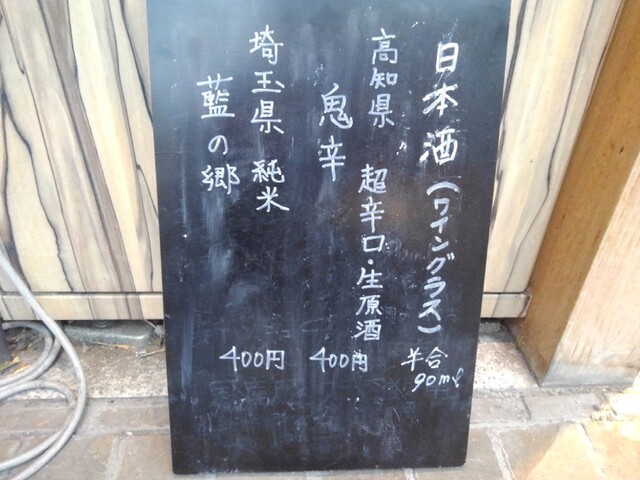 日本酒（ワイングラス）
半合
90ml
高知県 超辛口・生原酒
鬼辛 400円
埼玉県 純米
藍の郷 400円